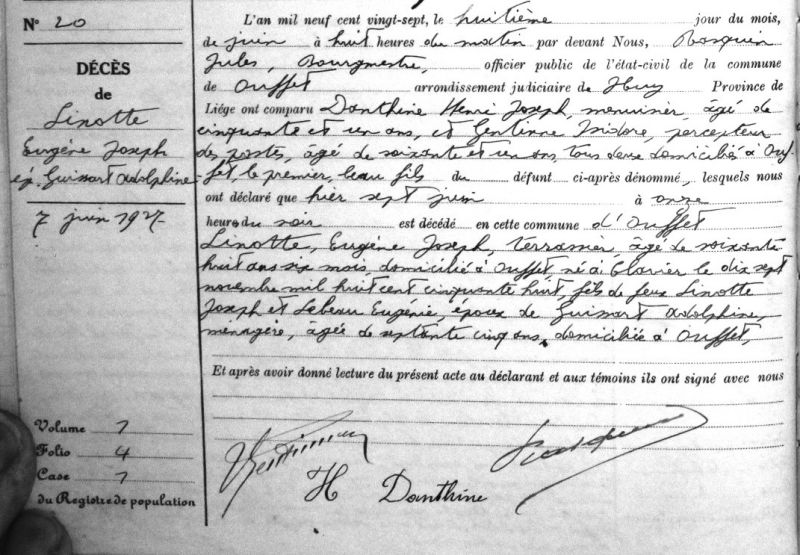 N° 20
DÉCÈS
de
Linotte
Eugène Joseph
ép. Guissart Adolphine
7 juin 1927
Volume 7
Folio 4
Case 7
du Registre de population
L'an mil neuf cent vingt-sept, le huitième jour du mois,
de juin à huit heures du matin par devant Nous, Rosquin
Jules, Bourgmestre, officier public de l'état-civil de la commune
de Ouffet arrondissement judiciaire de Huy Province de
Liége ont comparu Danthine Henri Joseph, menuisier, âgé de
cinquante et un ans, et Gentinne Isidore, percepteur
des postes, âgé de soixante et un ans, tous deux domiciliés à Ouf-
fet, le premier, beau fils du défunt ci-après dénommé, lesquels nous
ont déclaré que hier sept juin à onze
heures du soir est décédé en cette commune d'Ouffet
Linotte, Eugène Joseph, terrassier, âgé de soixante
huit ans six mois, domicilié à Ouffet, né à Clavier le dix sept
novembre mil huit cent cinquante huit, fils de feux Linotte
Joseph et Lebeau Eugénie, époux de Guissart Adolphine,
ménagère, âgée de septante cinq ans, domiciliée à Ouffet,
Et après avoir donné lecture du présent acte au déclarant et aux témoins ils ont signé avec nous
H Danthine